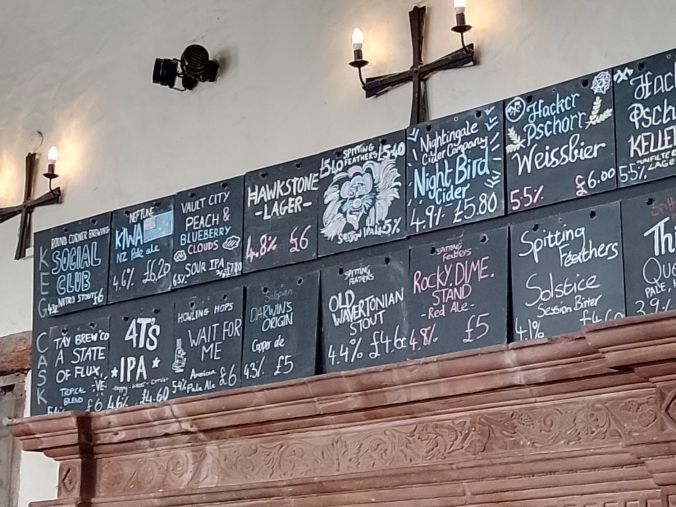 KEG
ROUND CORNER BREWING
SOCIAL
CLUB
NITRO STOUT £6
NEPTUNE
KIWA
NZ Pale ale
4.6% £6.20
VAULT CITY
PEACH &
BLUEBERRY
CLOUDS
SOUR IPA
HAWKSTONE
-LAGER-
4.8% £6
SPITTING
FEATHERS
£5.40
4.5%
Nightingale
Cider Company
Night Bird
Cider
4.9% £5.80
Hacker
Pschorr
Weissbier
5.5% £6.00
Hack
Psch
KELLE
UNFILTER
5.5% LAGER
CASK
TAY BREW CO
A STATE
OF FLUX
TROPICAL
BLEND
£6
4Ts
IPA
4.6% £4.60
HOWLING HOPS
WAIT FOR
ME
American
5.4% Pale Ale £6
Salopian
DARWIN'S
ORIGIN
Copper ale
4.3% £5
SPITTING
FEATHERS
OLD
WAVERTONIAN
STOUT
4.4% £4.60
SPITTING
FEATHERS
ROCKY.DIME.
STAND
-Red Ale-
4.8% £5
Spitting
Feathers
Solstice
Session Bitter
4.1% £4.60
Thi
Que
PALE,
3.9%